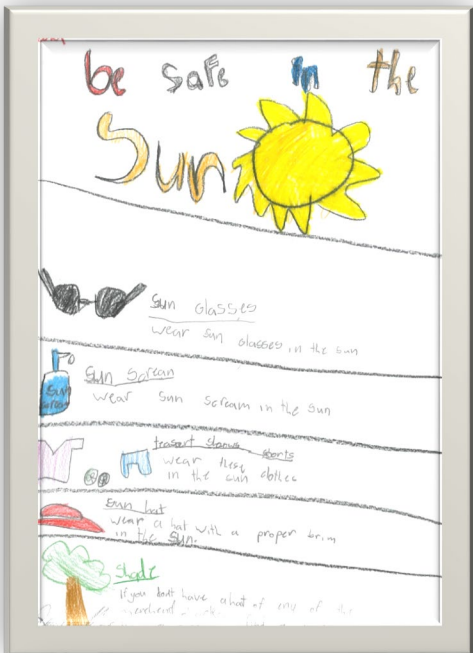 be safe in the
Sun
Sun Glasses
wear sun glasses in the sun
Sun Screan
wear sun scream in the sun
Sun
wear these
in the sun clothes
Sun hat
wear a hat with a proper brim
in the Sun.
Shade
If you dont have a hat of any of the